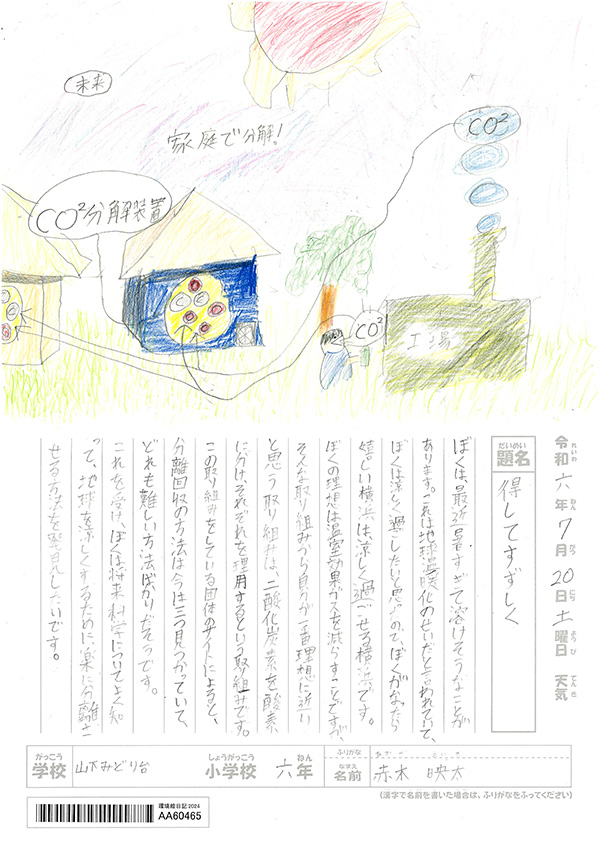 未来
家庭で分解!
CO²
CO²分解装置
CO²
工場
令和六年7月20日土曜日 天気
れいわ ねん がつ にち よう び てん き
だいめい
題名
得してすずしく
ぼくは、最近暑すぎて溶けそうなことが
あります。これは地球温暖化のせいだと言われていて、
ぼくは涼しく過ごしたいと思うので、ぼくがなったら
嬉しい横浜は、涼しく過ごせる横浜です。
ぼくの理想は温室効果ガスを減らすことですが、
そんな取り組みから自分が一番理想に近い
と思う取り組みは、二酸化炭素を酸素
に分け、それぞれを理用するという取り組みです。
この取り組みをしている団体のサイトによると、
分離回収の方法は今は三つ見つかっていて、
どれも難しい方法ばかりだそうです。
これを受け、ぼくは将来科学についてよく知
って、地球を涼しくするために、楽に分離さ
せる方法を発見したいです。
がっこう
学校
山下みどり台
しょうがっこう
小学校
六年
ねん
ふりがな
なまえ
名前
赤木 映太
(漢字で名前を書いた場合は、ふりがなをふってください)
環境絵日記2024
AA60465